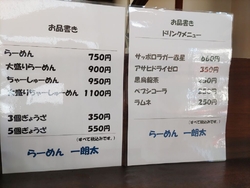 お品書き
らーめん 750円
大盛りらーめん 900円
ちゃーしゅーめん 950円
大盛りちゃーしゅーめん 1100円
3個ぎょうざ 350円
5個ぎょうざ 550円
(すべて税込みです。)
らーめん 一朗太
お品書き
ドリンクメニュー
サッポロラガー赤星 660円
アサヒドライゼロ 350円
黒烏龍茶
ペプシコーラ
ラムネ 250円
(すべて税込みです。)
らーめん 一朗太